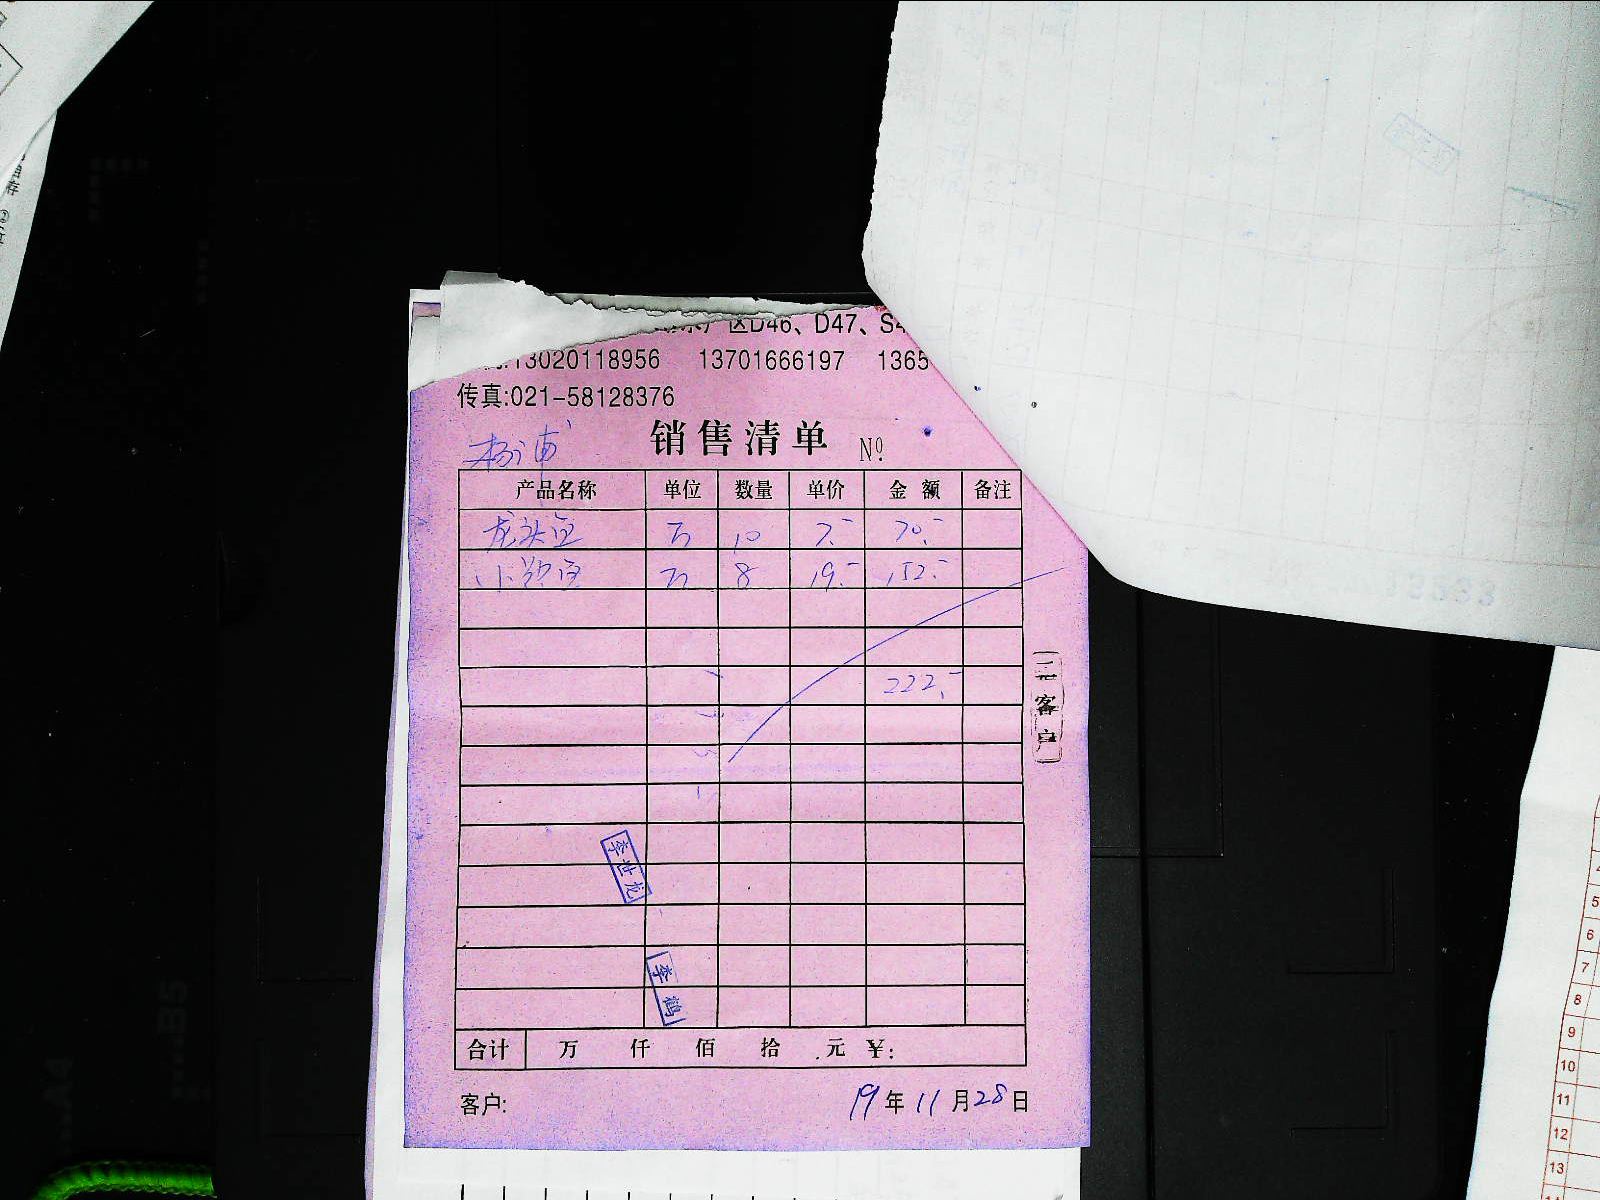 区D46、D47、S4
13020118956 13701666197 1365
传真:021-58128376
销售清单 Nº
杨浦
产品名称 单位 数量 单价 金额 备注
龙头鱼 10 7.- 70.-
8 19.- 152.-
222.-
二 客户
李世龙
李鹤
合计 万 仟 佰 拾 元 ¥:
客户: 19年11月28日
B5
A4
4
5
6
7
8
9
10
11
12
13
14